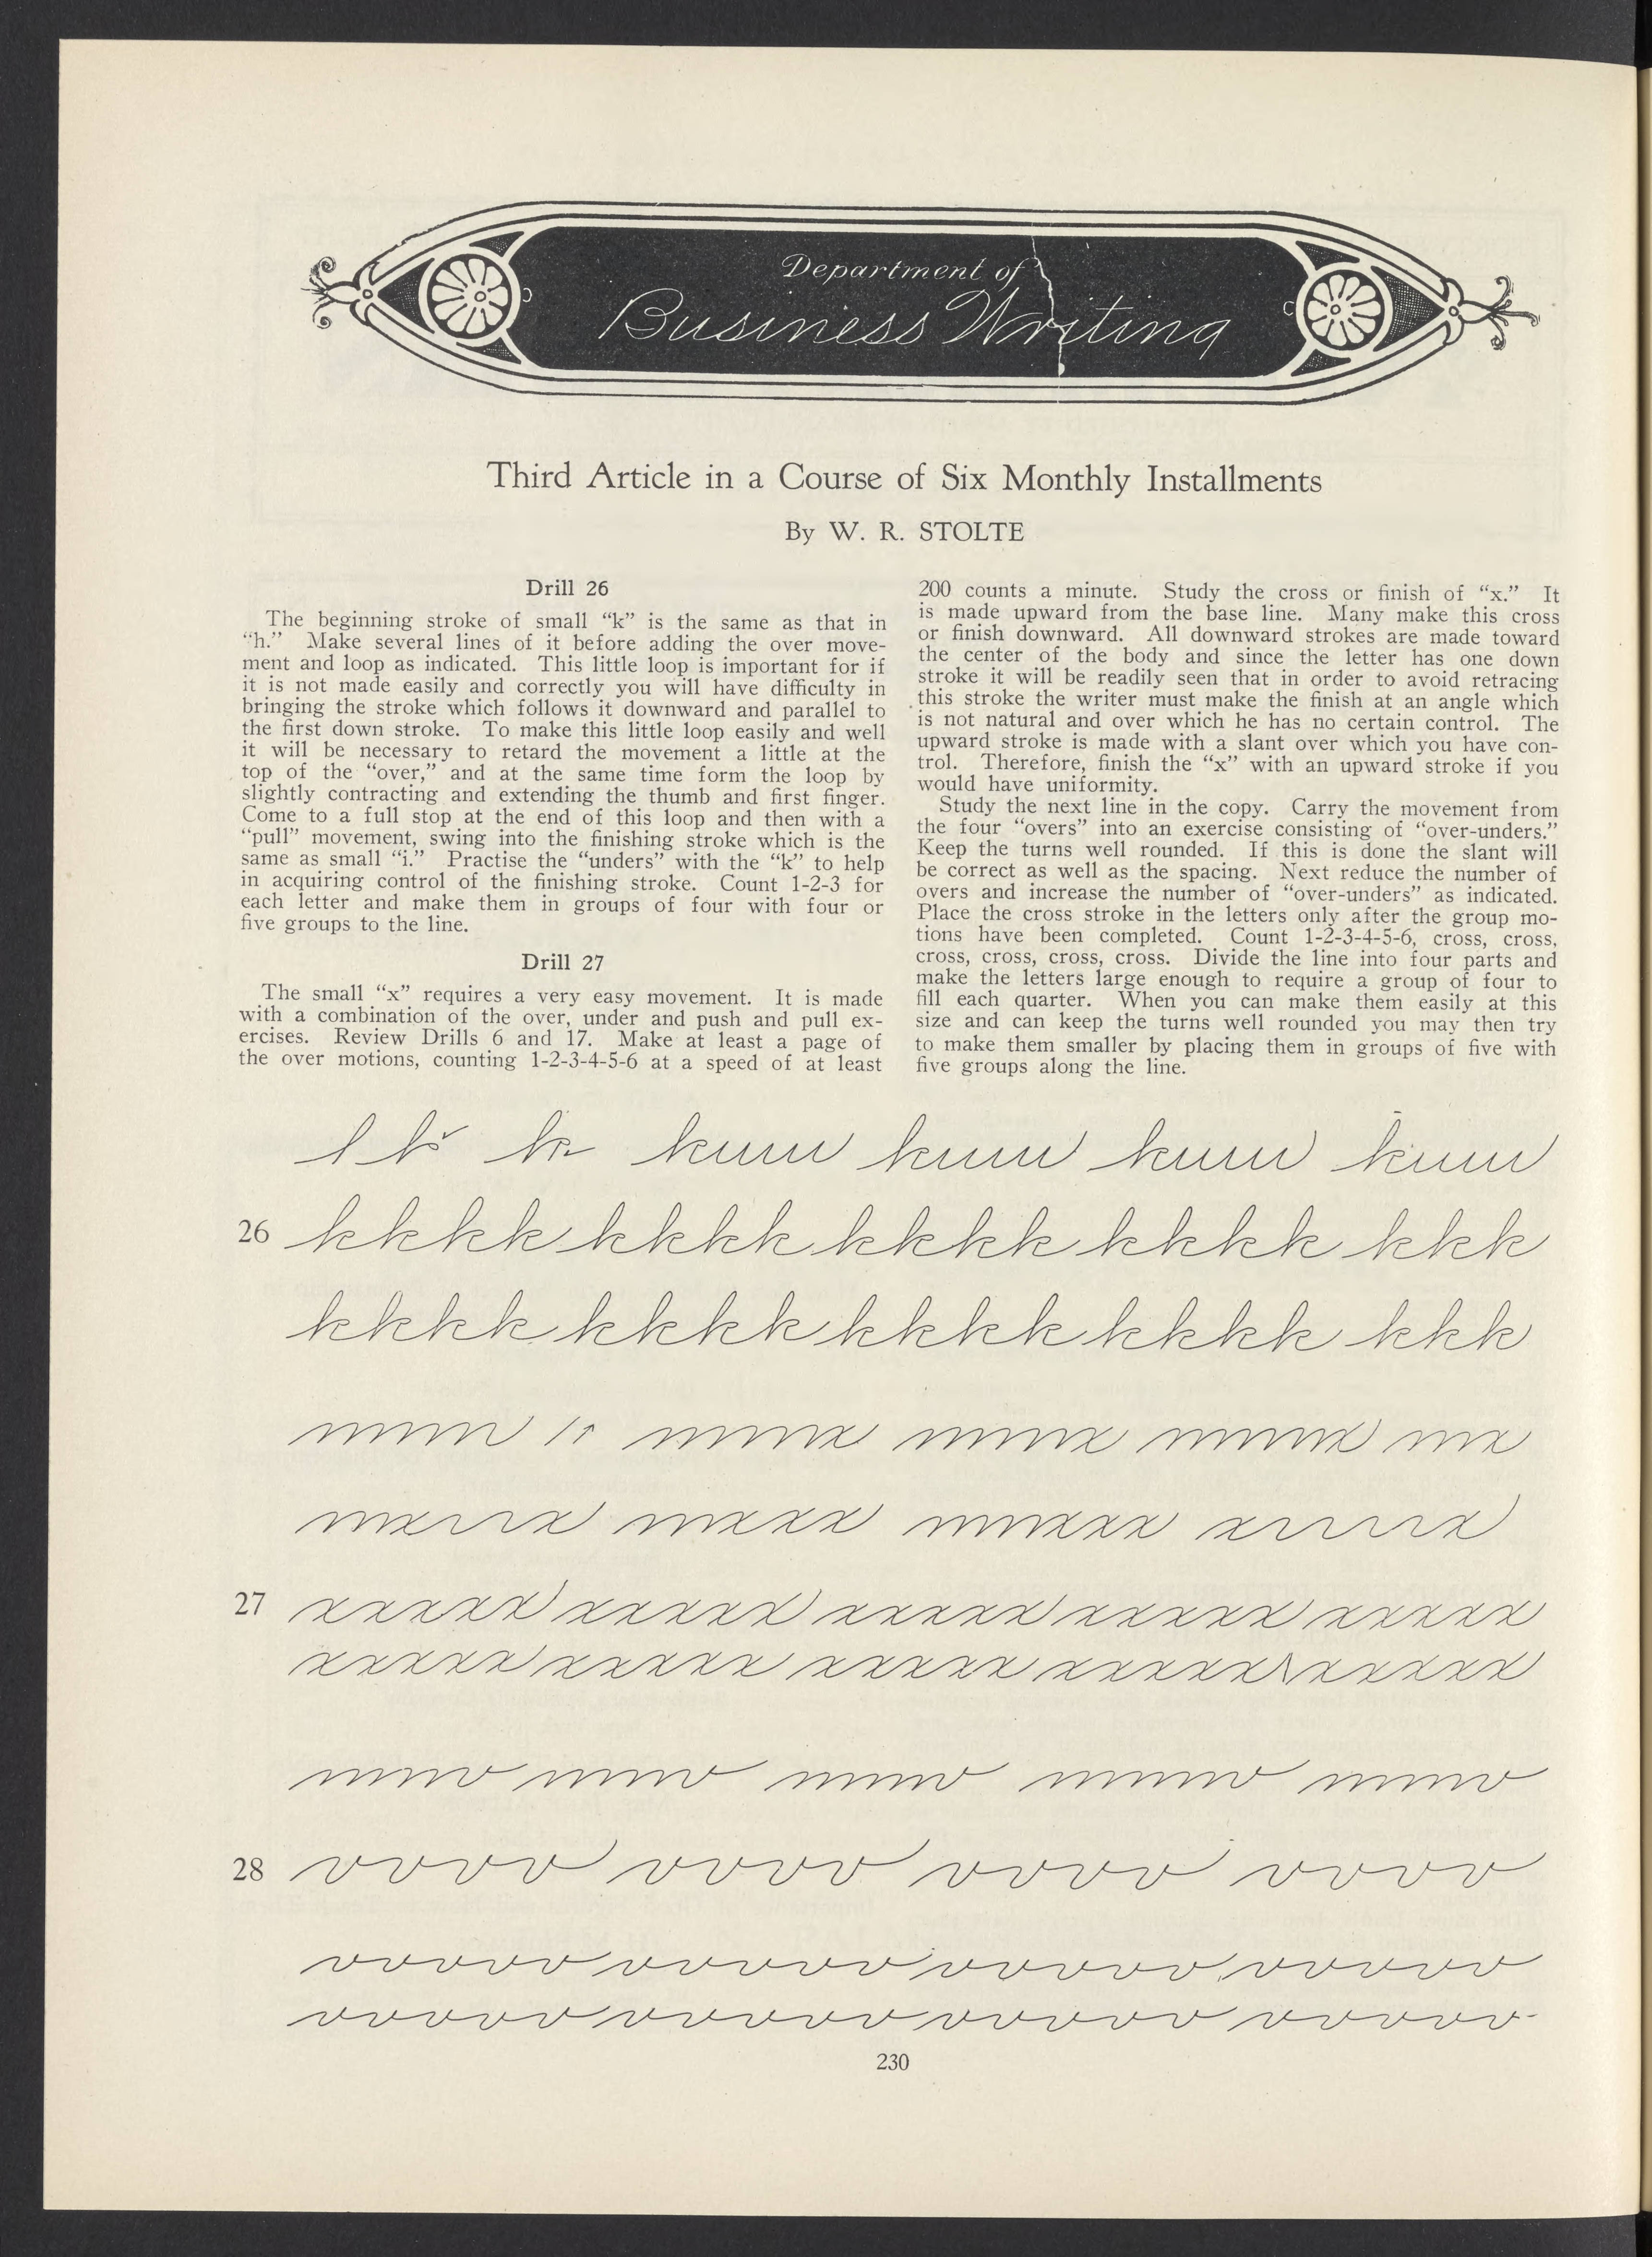 Department of
Business Writing
Third Article in a Course of Six Monthly Installments
By W. R. STOLTE
Drill 26
The beginning stroke of small “k” is the same as that in
“h.” Make several lines of it before adding the over move-
ment and loop as indicated. This little loop is important for if
it is not made easily and correctly you will have difficulty in
bringing the stroke which follows it downward and parallel to
the first down stroke. To make this little loop easily and well
it will be necessary to retard the movement a little at the
top of the “over,” and at the same time form the loop by
slightly contracting and extending the thumb and first finger.
Come to a full stop at the end of this loop and then with a
“pull” movement, swing into the finishing stroke which is the
same as small “i.” Practise the “unders” with the “k” to help
in acquiring control of the finishing stroke. Count 1-2-3 for
each letter and make them in groups of four with four or
five groups to the line.
Drill 27
The small “x” requires a very easy movement. It is made
with a combination of the over, under and push and pull ex-
ercises. Review Drills 6 and 17. Make at least a page of
the over motions, counting 1-2-3-4-5-6 at a speed of at least
200 counts a minute. Study the cross or finish of “x.” It
is made upward from the base line. Many make this cross
or finish downward. All downward strokes are made toward
the center of the body and since the letter has one down
stroke it will be readily seen that in order to avoid retracing
this stroke the writer must make the finish at an angle which
is not natural and over which he has no certain control. The
upward stroke is made with a slant over which you have con-
trol. Therefore, finish the “x” with an upward stroke if you
would have uniformity.
Study the next line in the copy. Carry the movement from
the four “overs” into an exercise consisting of “over-unders.”
Keep the turns well rounded. If this is done the slant will
be correct as well as the spacing. Next reduce the number of
overs and increase the number of “over-unders” as indicated.
Place the cross stroke in the letters only after the group mo-
tions have been completed. Count 1-2-3-4-5-6, cross, cross,
cross, cross, cross, cross. Divide the line into four parts and
make the letters large enough to require a group of four to
fill each quarter. When you can make them easily at this
size and can keep the turns well rounded you may then try
to make them smaller by placing them in groups of five with
five groups along the line.
26 kkkk kkkk kkkk kkkk kkk
kkkk kkkk kkkk kkkk kkk
27 xxxxx xxxxx xxxxx xxxxx xxxxx
xxxxx xxxxx xxxxx xxxxx xxxxx
28 vvvv vvvv vvvv vvvv
vvvvv vvvvv vvvvv vvvvv
vvvvv vvvvv vvvvv vvvvv
230